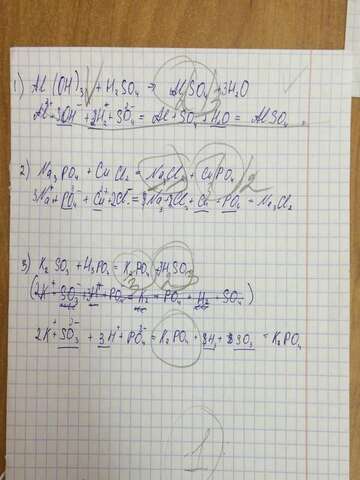 1) Al (OH)3 + H2SO4 → Al SO4 + 3H2O
Al3+ + 3OH- + 2H+ + SO4 2- = Al + SO4 + H2O = AlSO4
2) Na3PO4 + CuCl2 = Na3Cl2 + CuPO4
3Na+ + PO4 3- + Cu + 2Cl- = 3Na + 2Cl + Cu + PO4 = Na3Cl2
3) K2SO3 + H3PO4 = K2PO4 + H3SO3
(2K+ + SO3 2- + 3H+ + PO4 = K2 + PO4 + H2 + SO4)
2K+ + SO3 2- + 3H+ + PO4 3- = K2PO4 + 3H + SO3 = K2PO4
1